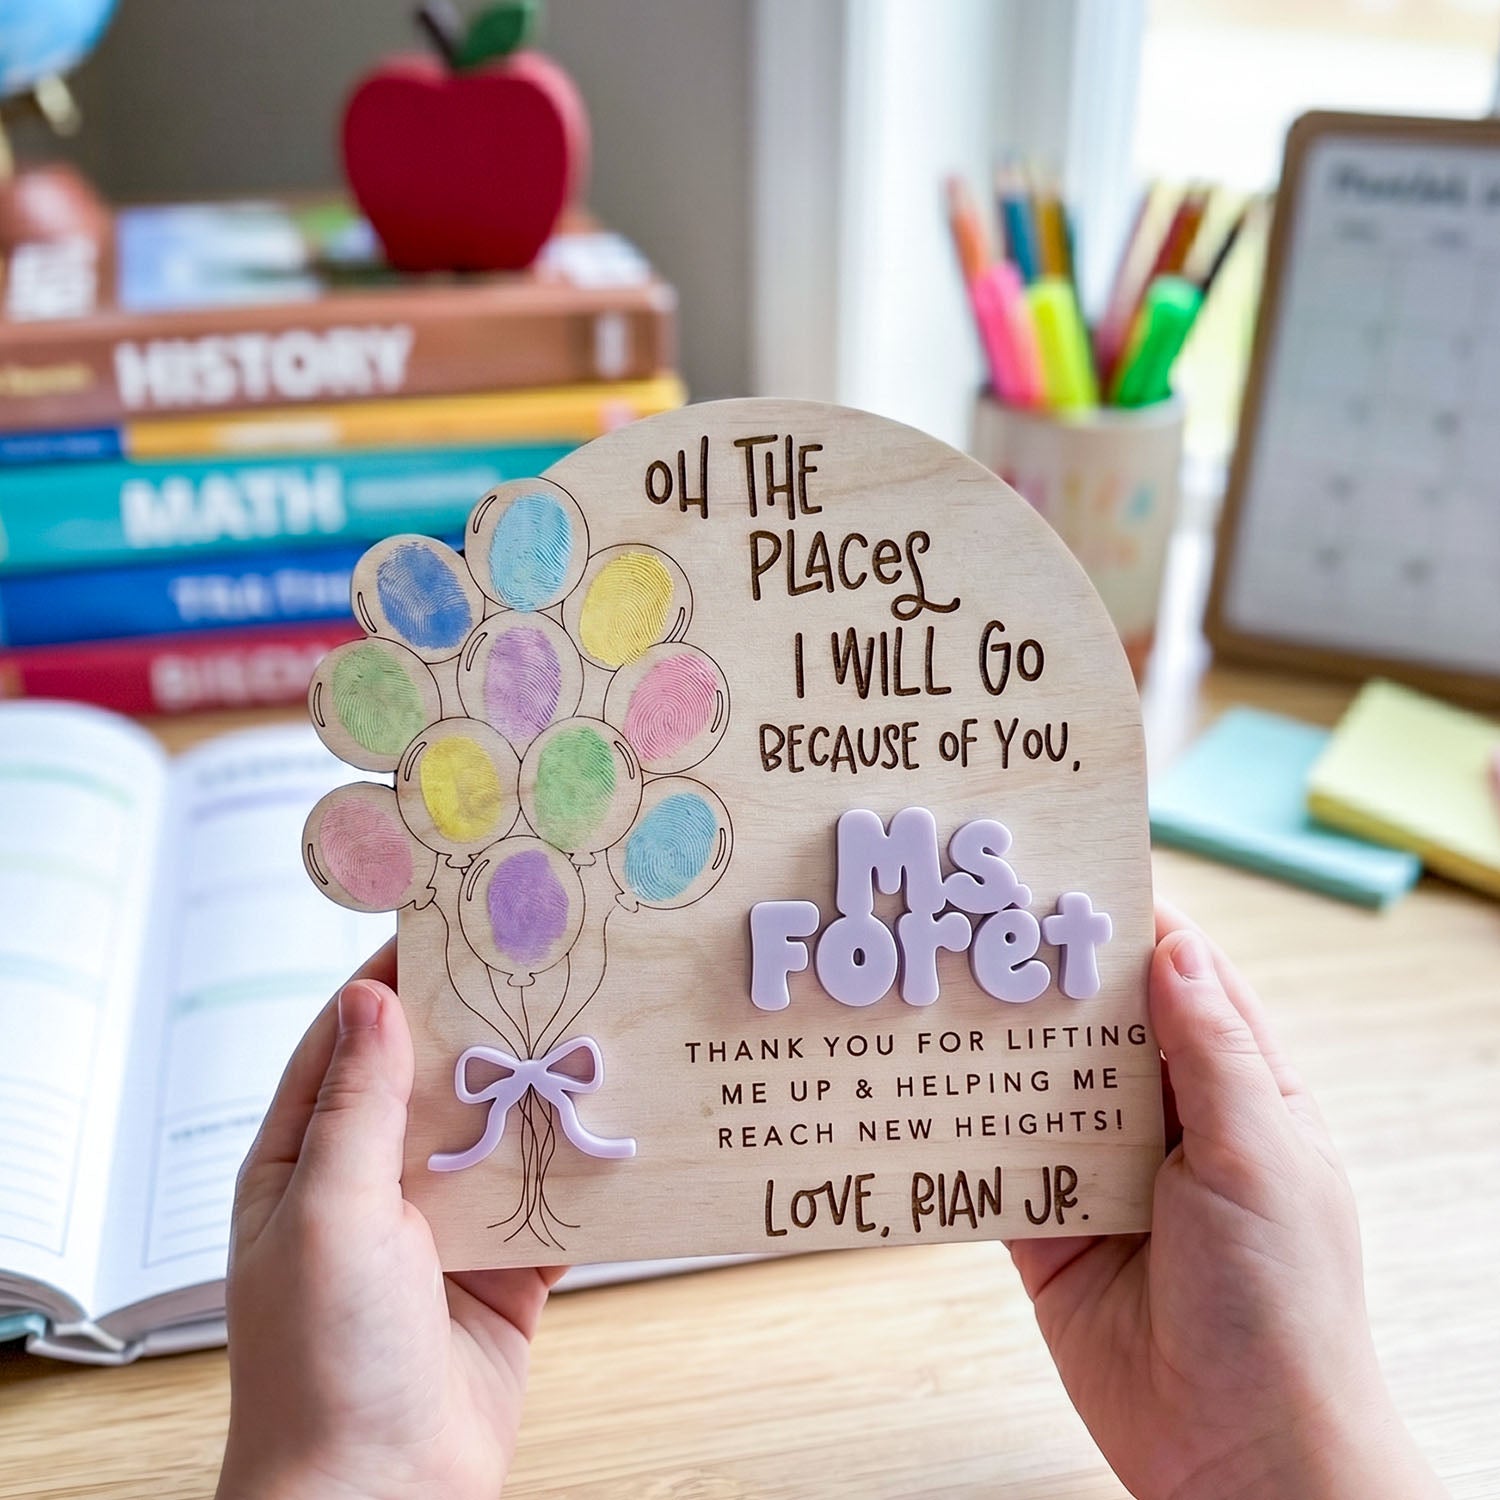 HISTORY
MATH
OH THE
PLACES
I WILL GO
BECAUSE OF YOU,
Ms.
Foret
THANK YOU FOR LIFTING
ME UP & HELPING ME
REACH NEW HEIGHTS!
LOVE, RIAN JR.